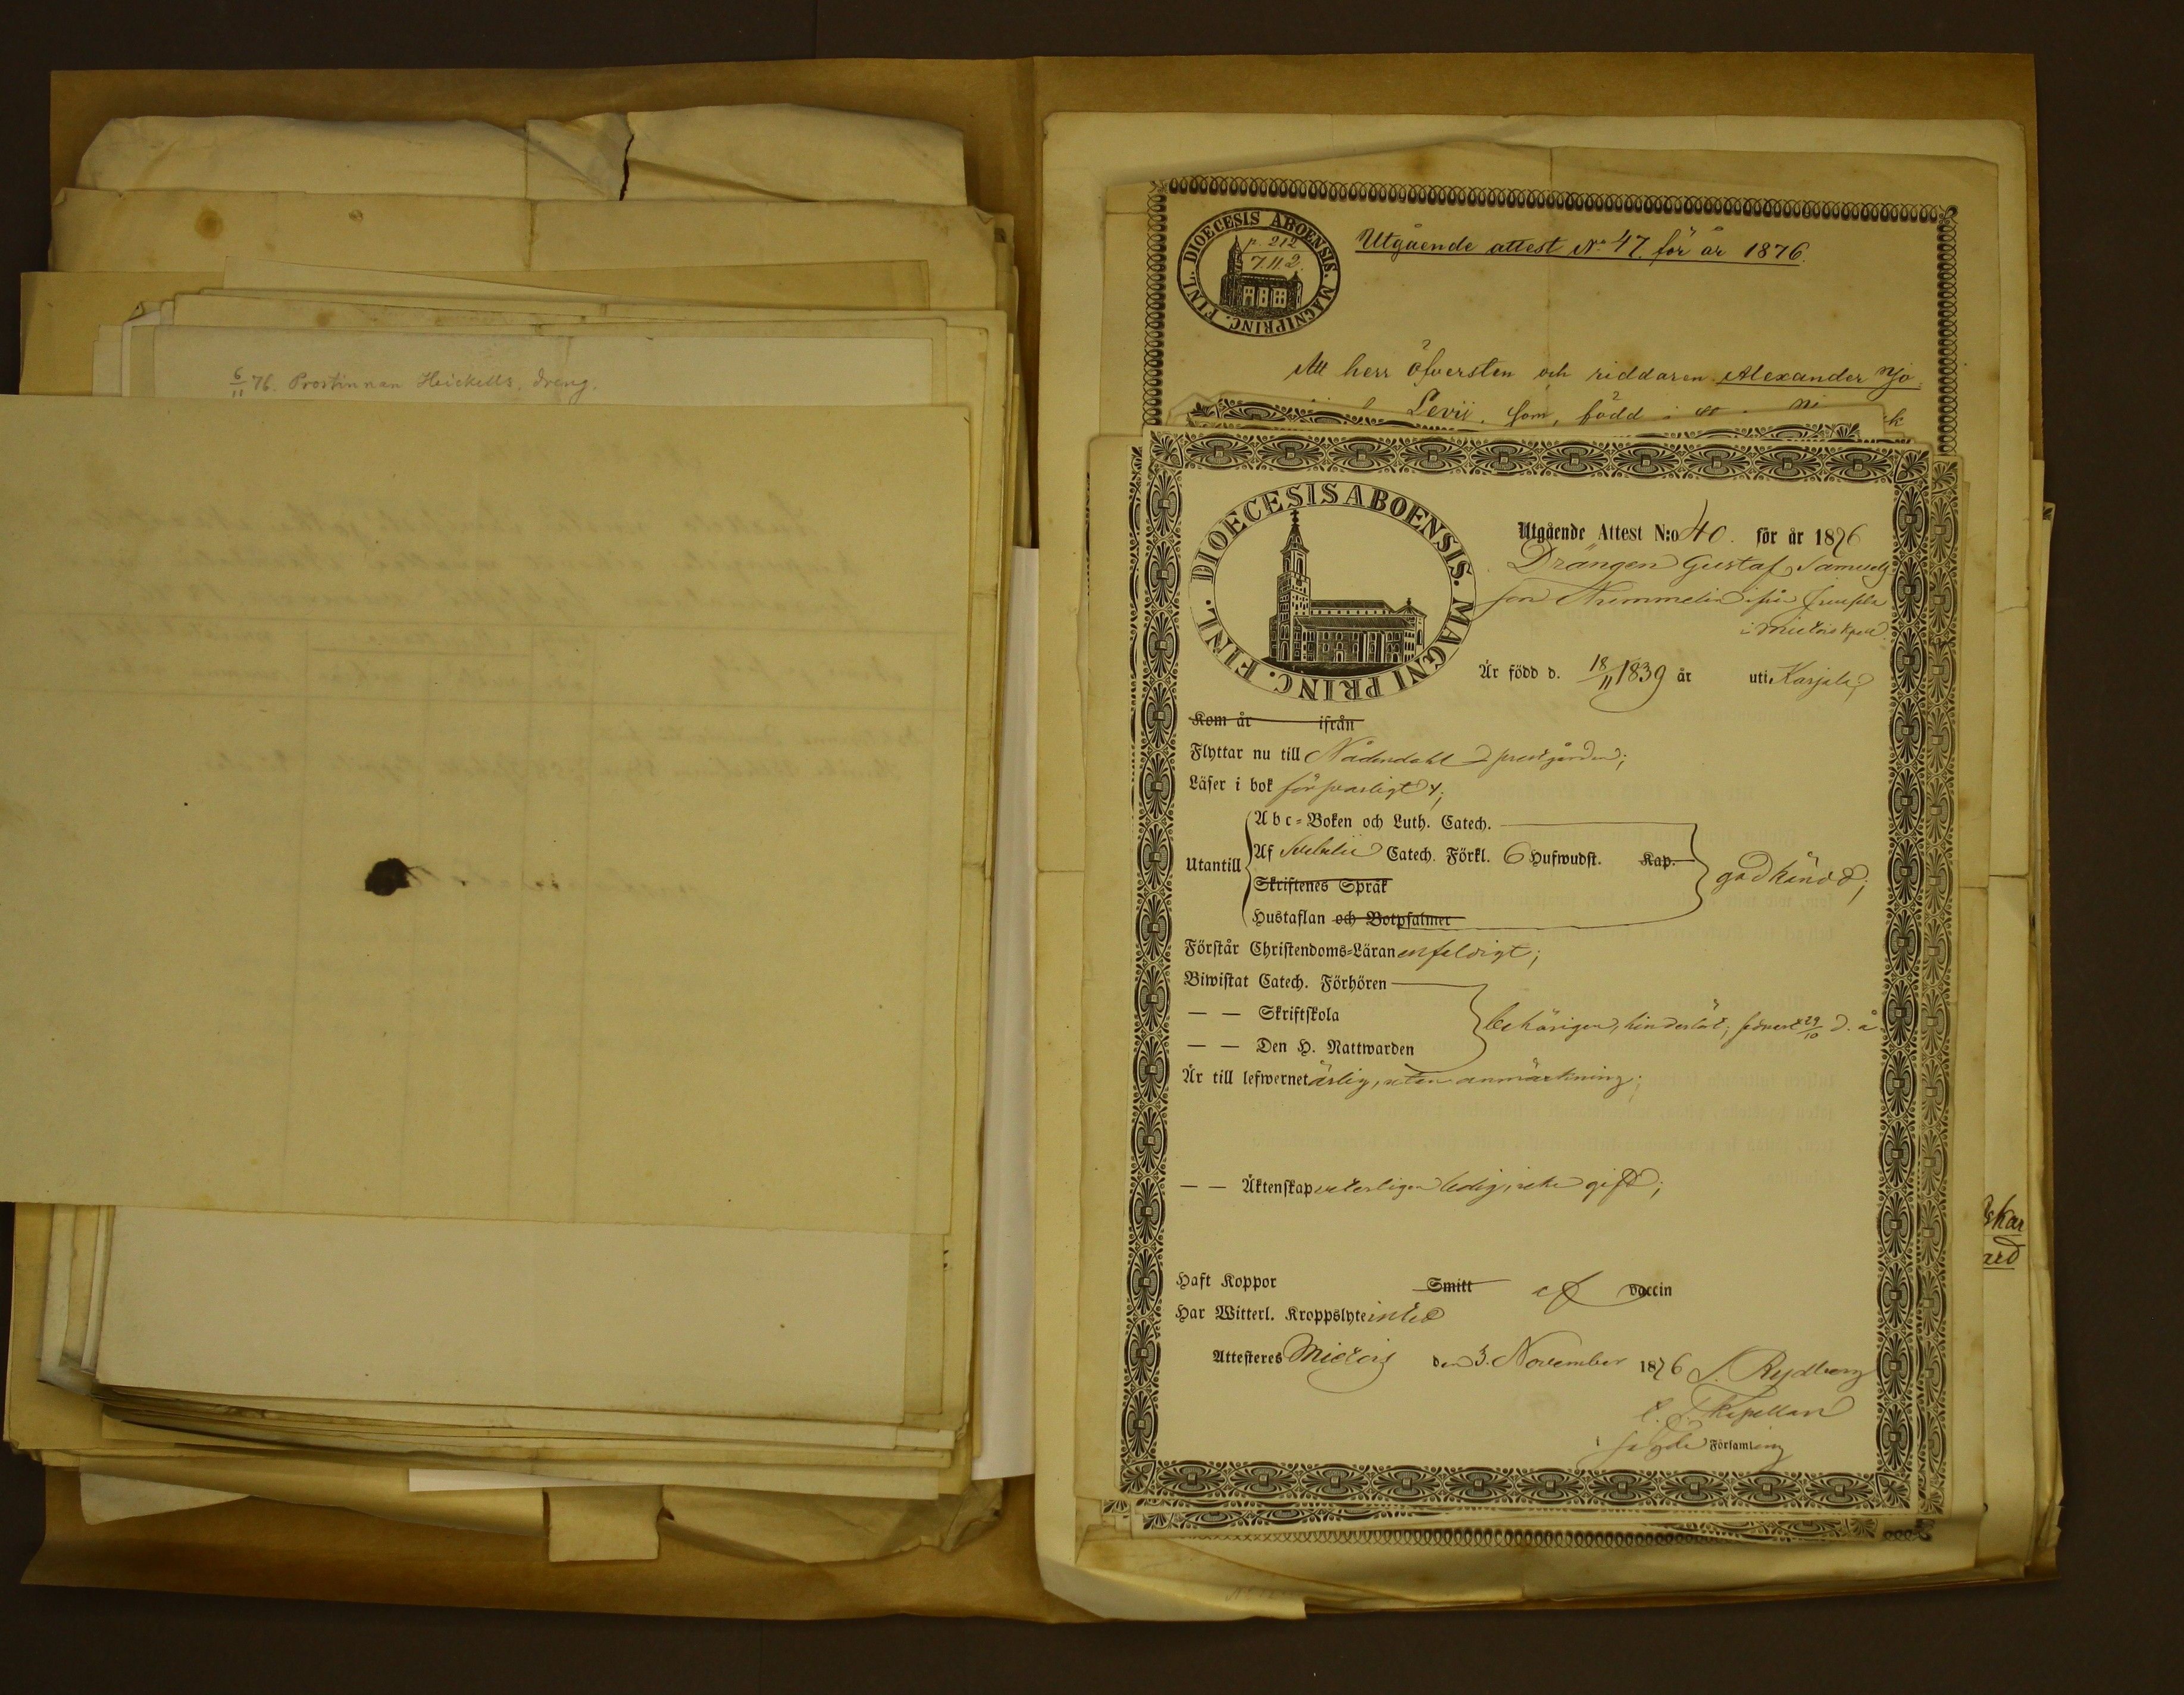 6/11 76. Prostinnan Heickells, dreng.
DIOECESIS ABOENSIS. MAGNI PRINC. FINL.
p. 212
7.11.2.
Utgående attest No 47. för år 1876.
Att herr öfversten och riddaren Alexander
Levii, som, född
DIOECESIS ABOENSIS. MAGNI PRINC. FINL.
Utgående Attest N:o 40. för år 1876
Drängen Gustaf Samuels
son Nummelin ifrån
i Mietois Kapell.
Är född d. 18/11 1839 år uti Karjala;
Kom år ifrån
Flyttar nu till Nådendahl prestgården;
Läser i bok försvarligt;
Utantill
Abc-Boken och Luth. Catech.
Af Svebelii Catech. Förkl. 6 Hufwudst. Kap.
Skriftenes Språk
Hustaflan och Botpsalmer
godkändt;
Förstår Christendoms-Läran enfeldigt;
Biwistat Catech. Förhören
— — Skriftskola
— — Den H. Nattwarden
behörigen, hinderlöst; senast 29/10 d. å.
Är till lefwernet ärlig, utan anmärkning;
— — Äktenskap veterligen ledig, icke gift;
Haft Koppor Smitt af vaccin
Har Witterl. Kroppslyte intet
Attesteres Mietois den 3. November 1876 S. Rydberg
Kapellan
i Församling